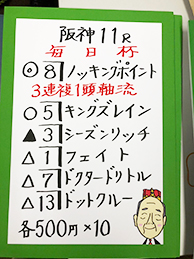 阪神11R
毎日杯
◎8ノッキングポイント
3連複1頭軸流
○5キングズレイン
▲3シーズンリッチ
△1フェイト
△7ドクタードリトル
△13ドットクルー
各500円×10